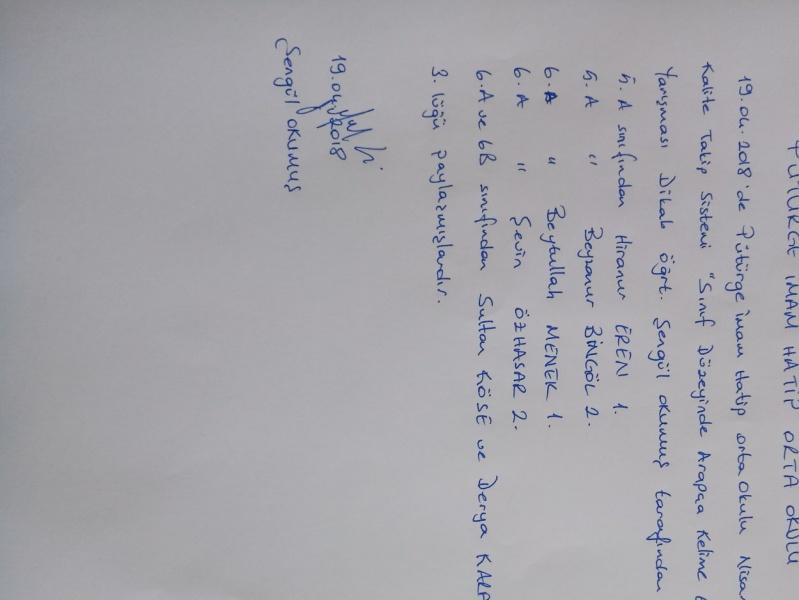 PÜTÜRGE İMAM HATİP ORTA OKULU
19.04.2018'de Pütürge İmam Hatip Orta Okulu Nisa
Kalite Takip Sistemi "Sınıf Düzeyinde Arapça Kelime
Yarışması Dikab öğrt. Şengül OKUMUŞ tarafından
5. A sınıfından Hiranur EREN 1.
5. A " Beyzanur BİNGÖL 2.
6. A " Beytullah MENEK 1.
6. A " Şevin ÖZHASAR 2.
6.A ve 6B sınıfından Sultan KÖSE ve Derya KALA
3. lüğü paylaşmışlardır.
19.04.2018
Şengül OKUMUŞ